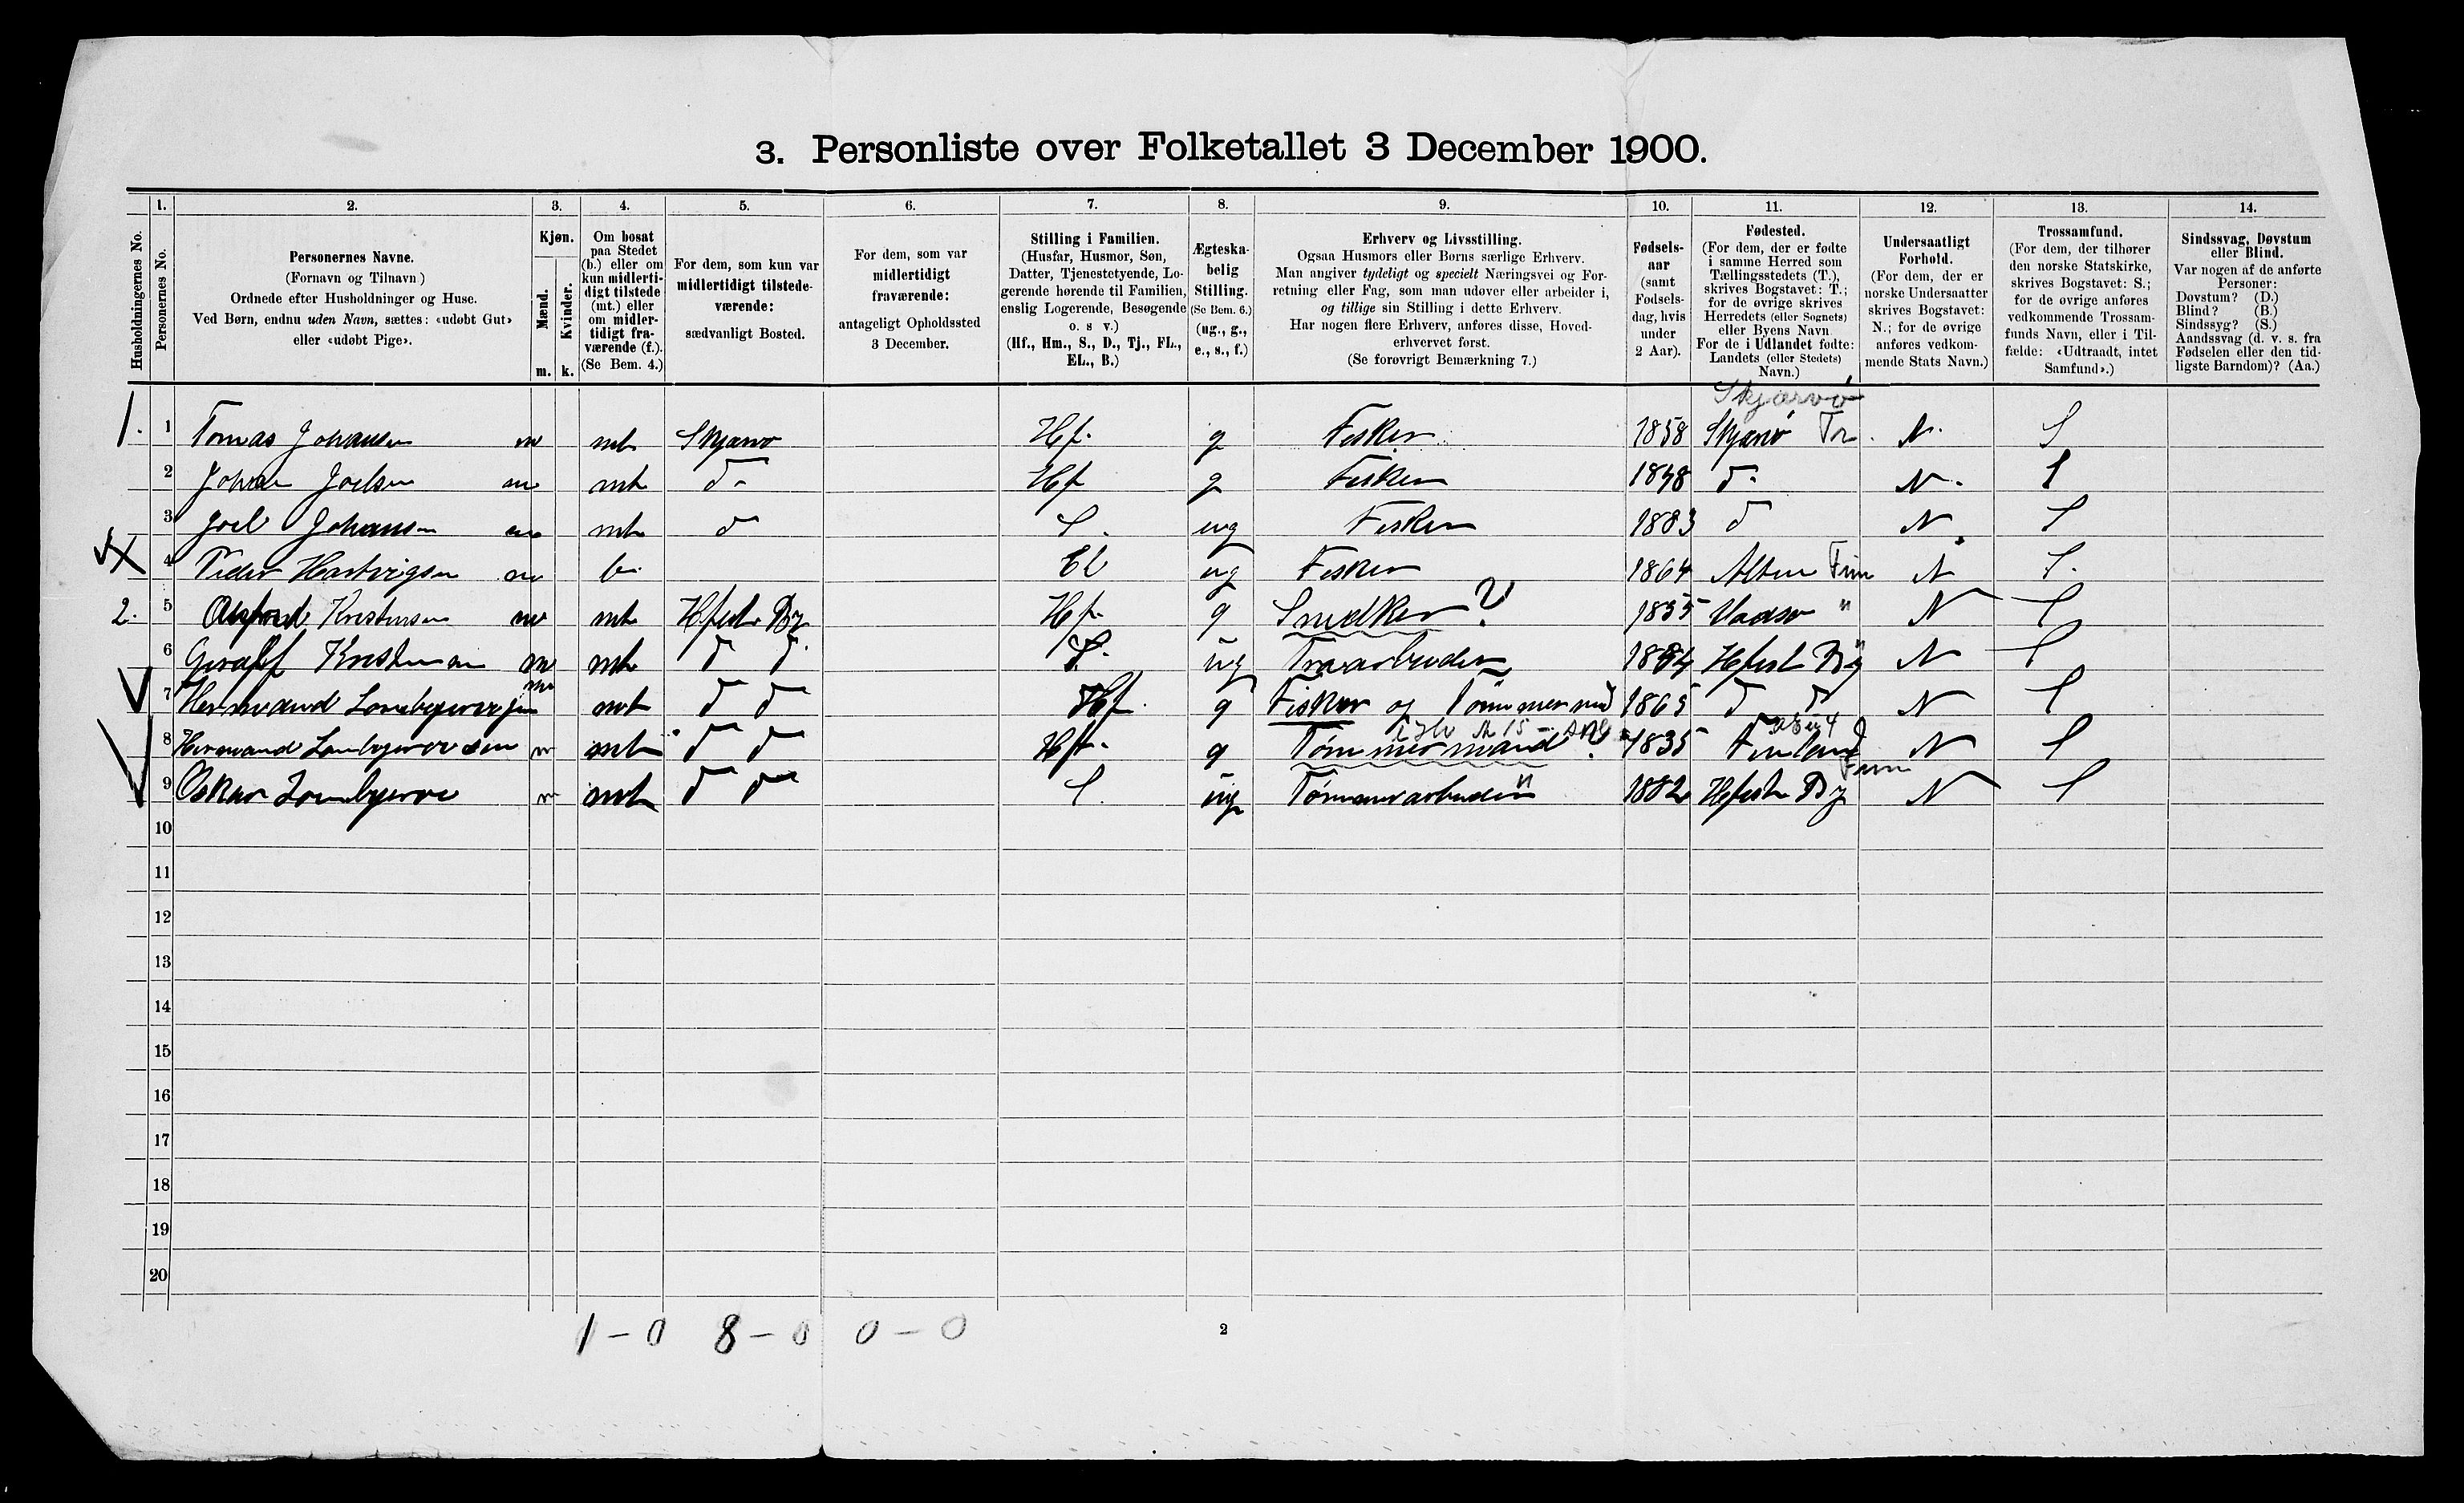 3. Personliste over Folketallet 3 December 1900.
Husholdningernes No.
1. 2. 3. 4. 5. 6. 7. 8. 9. 10. 11. 12. 13. 14.
Personernes No.
Personernes Navne.
(Fornavn og Tilnavn)
Ordnede efter Husholdninger og Huse.
Ved Børn, endnu uden Navn, sættes: «udøbt Gut»
eller «udøbt Pige».
Kjøn.
Mænd.
Kvinder.
m. k.
Om bosat
paa Stedet
(b.) eller om
kun midlerti-
digt tilstede
(mt.) eller
om midler-
tidigt fra-
værende (f.).
(Se Bem. 4.)
For dem, som kun var
midlertidigt tilstede-
værende:
sædvanligt Bosted.
For dem, som var
midlertidigt
fraværende:
antageligt Opholdssted
3 December.
Stilling i Familien.
(Husfar, Husmor, Søn,
Datter, Tjenestetyende, Lo-
gerende hørende til Familien,
enslig Logerende, Besøgende
o. s v.)
(Hf., Hm., S., D., Tj., FL.,
EL., B.)
Ægteska-
belig
Stilling.
(Se Bem. 6.)
(ug., g.,
e., s., f.)
Erhverv og Livsstilling.
Ogsaa Husmors eller Børns særlige Erhverv.
Man angiver tydeligt og specielt Næringsvei og For-
retning eller Fag, som man udøver eller arbeider i,
og tillige sin Stilling i dette Erhverv.
Har nogen flere Erhverv, anføres disse, Hoved-
erhvervet først.
(Se forøvrigt Bemærkning 7.)
Fødsels-
aar
(samt
Fødsels-
dag, hvis
under
2 Aar).
Fødested.
(For dem, der er fødte
i samme Herred som
Tællingsstedets (T.),
skrives Bogstavet: T.;
for de øvrige skrives
Herredets (eller Sognets)
eller Byens Navn.
For de i Udlandet fødte:
Landets (eller Stedets)
Navn.)
Undersaatligt
Forhold.
(For dem, der er
norske Undersaatter
skrives Bogstavet:
N.; for de øvrige
anføres vedkom-
mende Stats Navn.)
Trossamfund.
(For dem, der tilhører
den norske Statskirke,
skrives Bogstavet: S.;
for de øvrige anføres
vedkommende Trossam-
funds Navn, eller i Til-
fælde: «Udtraadt, intet
Samfund».)
Sindssvag, Døvstum
eller Blind.
Var nogen af de anførte
Personer:
Døvstum? (D.)
Blind? (B.)
Sindssyg? (S.)
Aandssvag (d. v. s. fra
Fødselen eller den tid-
ligste Barndom)? (Aa.)
Skjærvø
1. 1 Tomas Johansen m mt Skjærvø Hf. g Fisker 1858 Skjærvø Tr. N. S
2 Johan Joelsen m mt d- Hf g Fisker d. N. S
3 Joel Johansen m mt d S. ug Fisker 1883 d N S
4 Peder Hartvigsen m b. El ug Fisker 1864 Alten Fin N S.
2. 5 Kristensen m mt Hfest By Hf. g Snedker ? 1855 Vadsø " N S
6 Kristensen m mt d d. S. ug Træarbeider 1884 Hfest By N S
7 m mt d d Hf. g Fisker og Tømmermd 1865 d d N S
8 m mt d d Hf. g Tømmermand ? 1835 Finland N S
Finm
9 Oskar m mt d d S. ug Tømmerarbeider " 1882 Hfest By N S
10
11
12
13
14
15
16
17
18
19
20
1 - 0 8 - 0 0 - 0
2